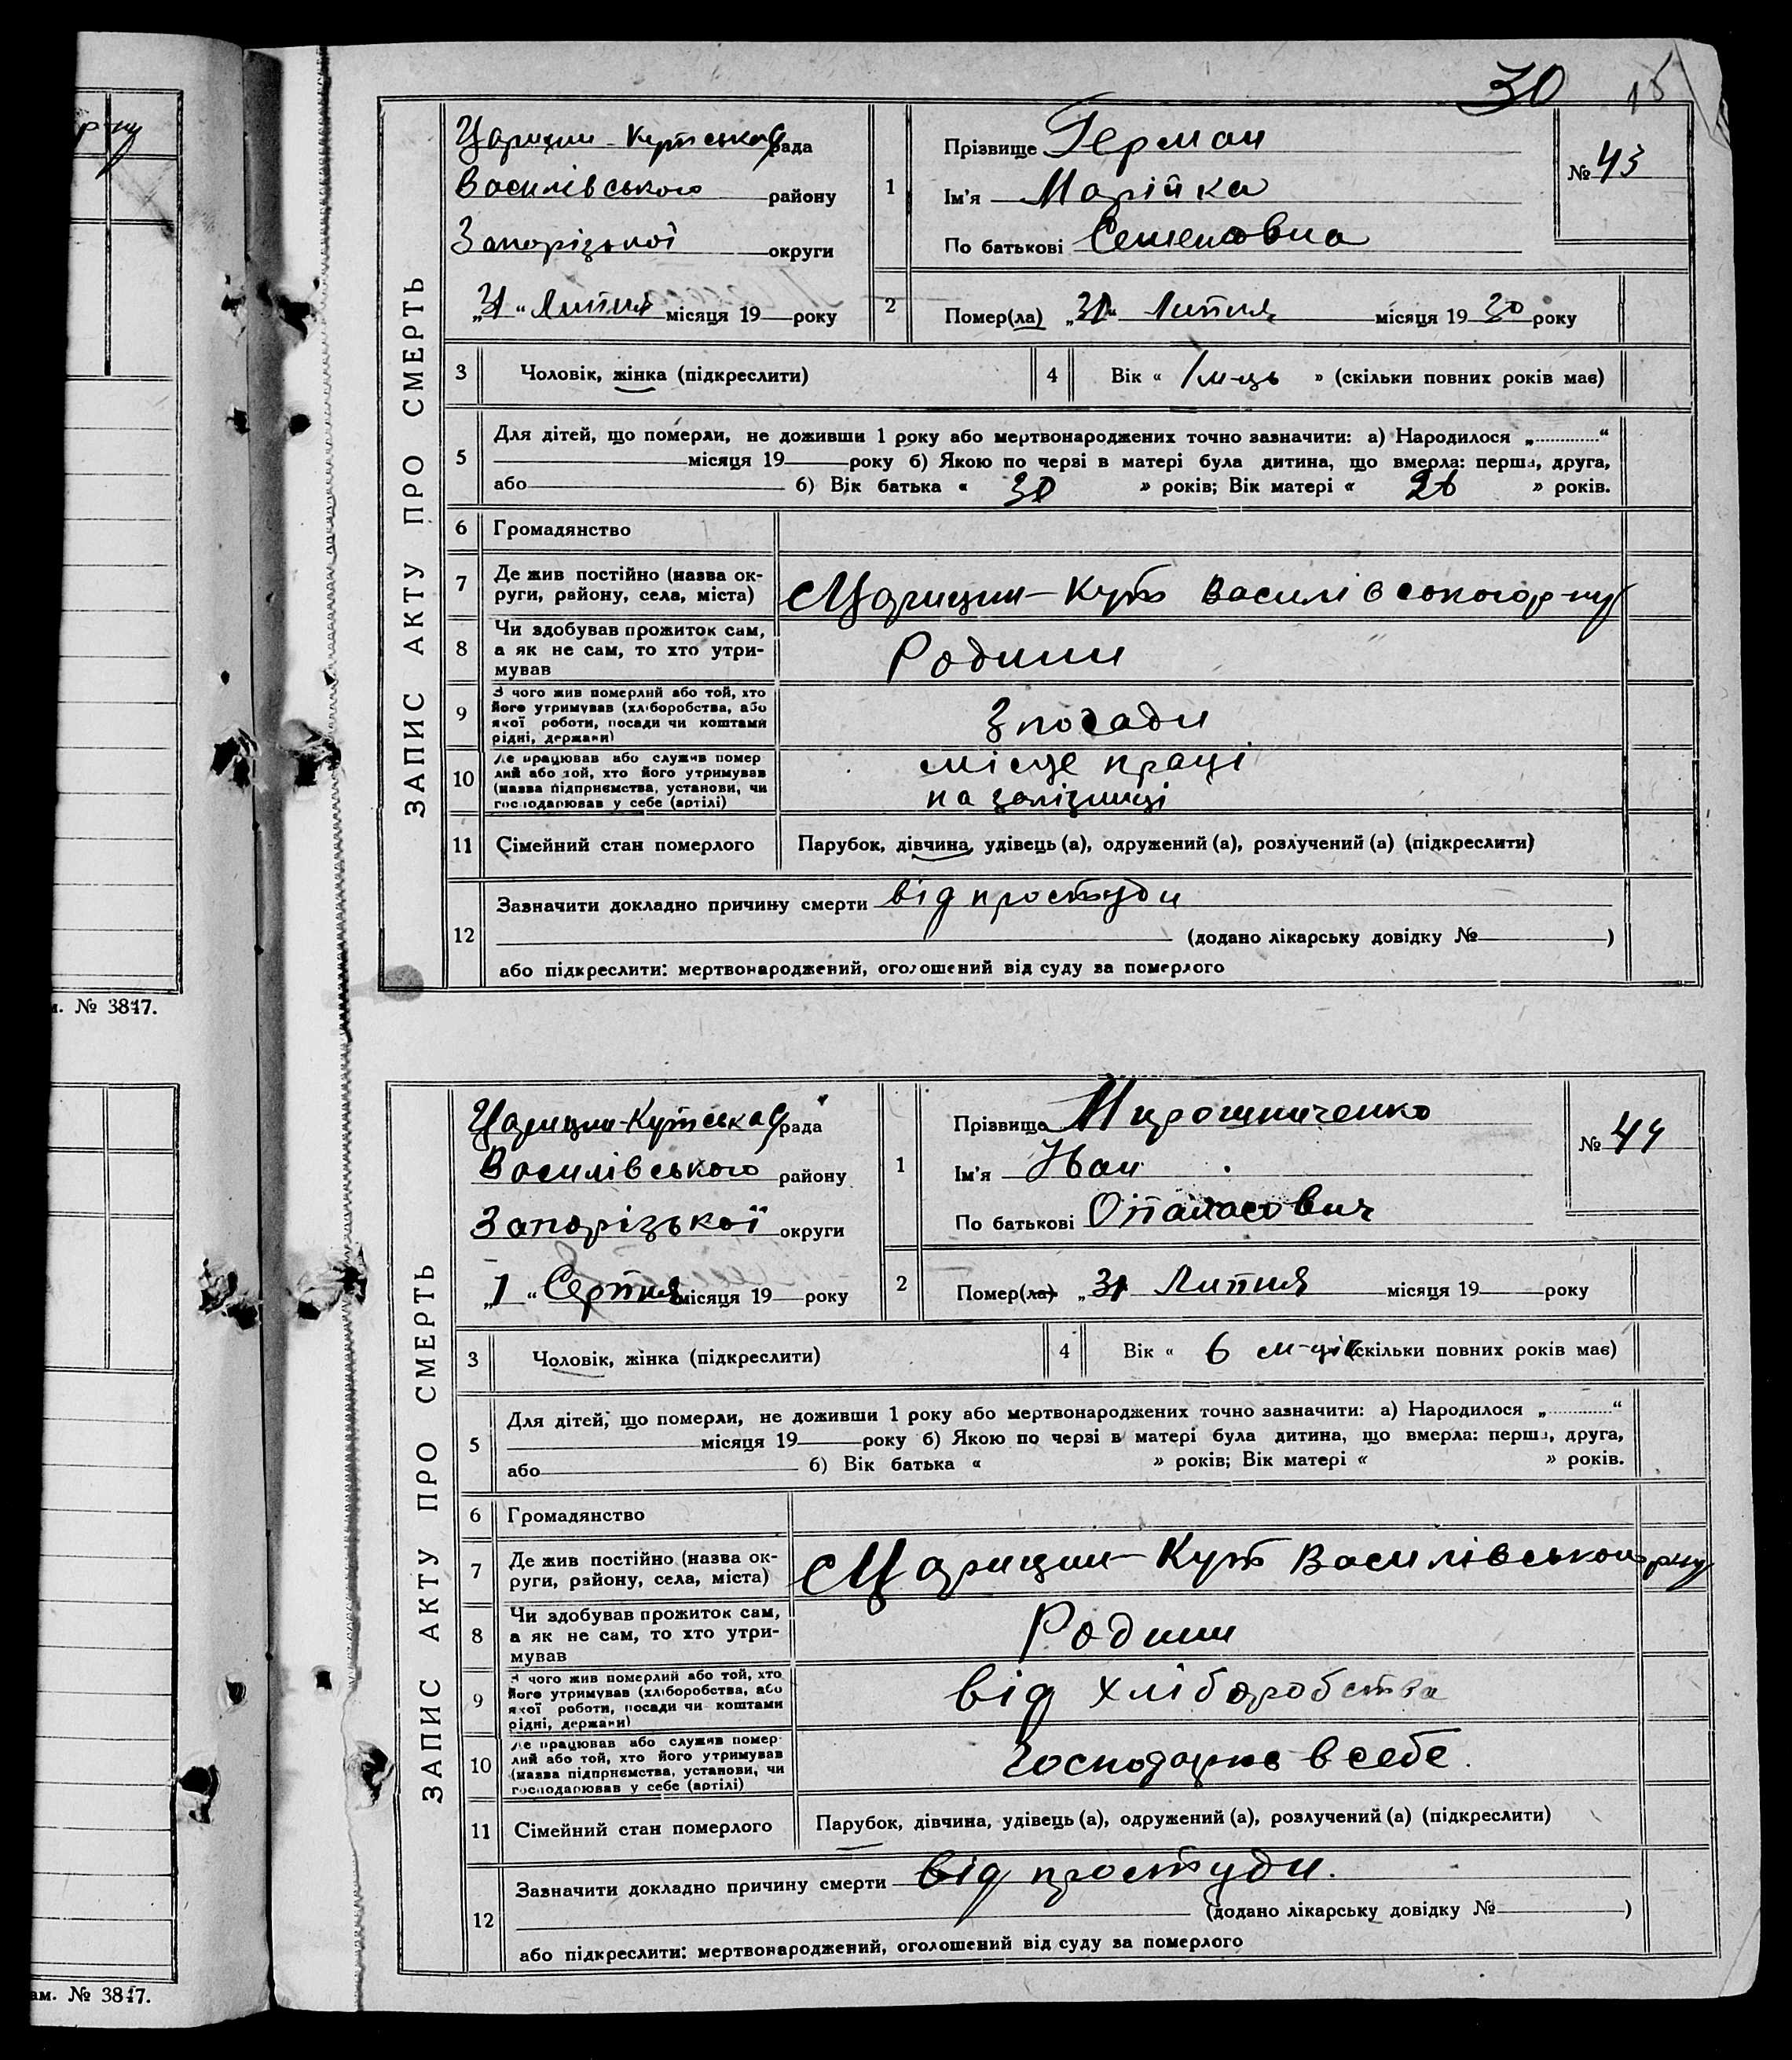 30 15
р-ну
м. № 3817.
ам. № 3817.
ЗАПИС АКТУ ПРО СМЕРТЬ
Царицин-Кутська рада
Василівського району
Запорізької округи
„31“ Липня місяця 19 року
1
Прізвище Герман
Ім'я Марійка
По батькові Семеновна
№ 43
2
Помер(ла) „31“ Липня місяця 19 30 року
3 Чоловік, жінка (підкреслити)
4 Вік « 1 м-ць » (скільки повних років має)
5
Для дітей, що померли, не доживши 1 року або мертвонароджених точно зазначити: а) Народилося „............“
місяця 19 року б) Якою по черзі в матері була дитина, що вмерла: перша, друга,
або б) Вік батька « 30 » років; Вік матері « 26 » років.
6 Громадянство
7
Де жив постійно (назва ок-
руги, району, села, міста)
с Царицин-Кут Василівського р-ну
8
Чи здобував прожиток сам,
а як не сам, то хто утри-
мував
Родини
9
З чого жив померлий або той, хто
його утримував (хліборобства, або
якої роботи, посади чи коштами
рідні, держави)
З посади
10
Де працював або служив помер
лий або той, хто його утримував
(назва підприємства, установи, чи
господарював у себе (артілі)
місце праці
на залізниці
11 Сімейний стан померлого
Парубок, дівчина, удівець (а), одружений (а), розлучений (а) (підкреслити)
12
Зазначити докладно причину смерти від простуди
(додано лікарську довідку № )
або підкреслити: мертвонароджений, оголошений від суду за померлого
ЗАПИС АКТУ ПРО СМЕРТЬ
Царицин-Кутська рада
Василівського району
Запорізької округи
„1“ Серпня місяця 19 року
1
Прізвище Мирошниченко
Ім'я Иван
По батькові Опанасович
№ 44
2
Помер(ла) „31 Липня місяця 19 року
3 Чоловік, жінка (підкреслити)
4 Вік « 6 м-ців (скільки повних років має)
5
Для дітей, що померли, не доживши 1 року або мертвонароджених точно зазначити: а) Народилося „............“
місяця 19 року б) Якою по черзі в матері була дитина, що вмерла: перша, друга,
або б) Вік батька « » років; Вік матері « » років.
6 Громадянство
7
Де жив постійно (назва ок-
руги, району, села, міста)
с Царицин-Кут Василівського р-ну
8
Чи здобував прожиток сам,
а як не сам, то хто утри-
мував
Родини
9
З чого жив померлий або той, хто
його утримував (хліборобства, або
якої роботи, посади чи коштами
рідні, держави)
від хліборобства
10
Де працював або служив помер-
лий або той, хто його утримував
(назва підприємства, установи, чи
господарював у себе (артілі)
в себе.
11 Сімейний стан померлого
Парубок, дівчина, удівець (а), одружений (а), розлучений (а) (підкреслити)
12
Зазначити докладно причину смерти від простуди.
(додано лікарську довідку № )
або підкреслити: мертвонароджений, оголошений від суду за померлого